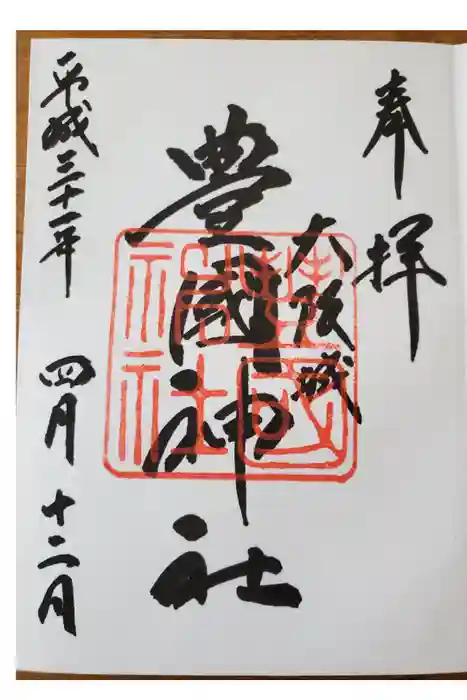 奉拝
大阪城
豊國神社
平成三十一年 四月十二日
豊國神社